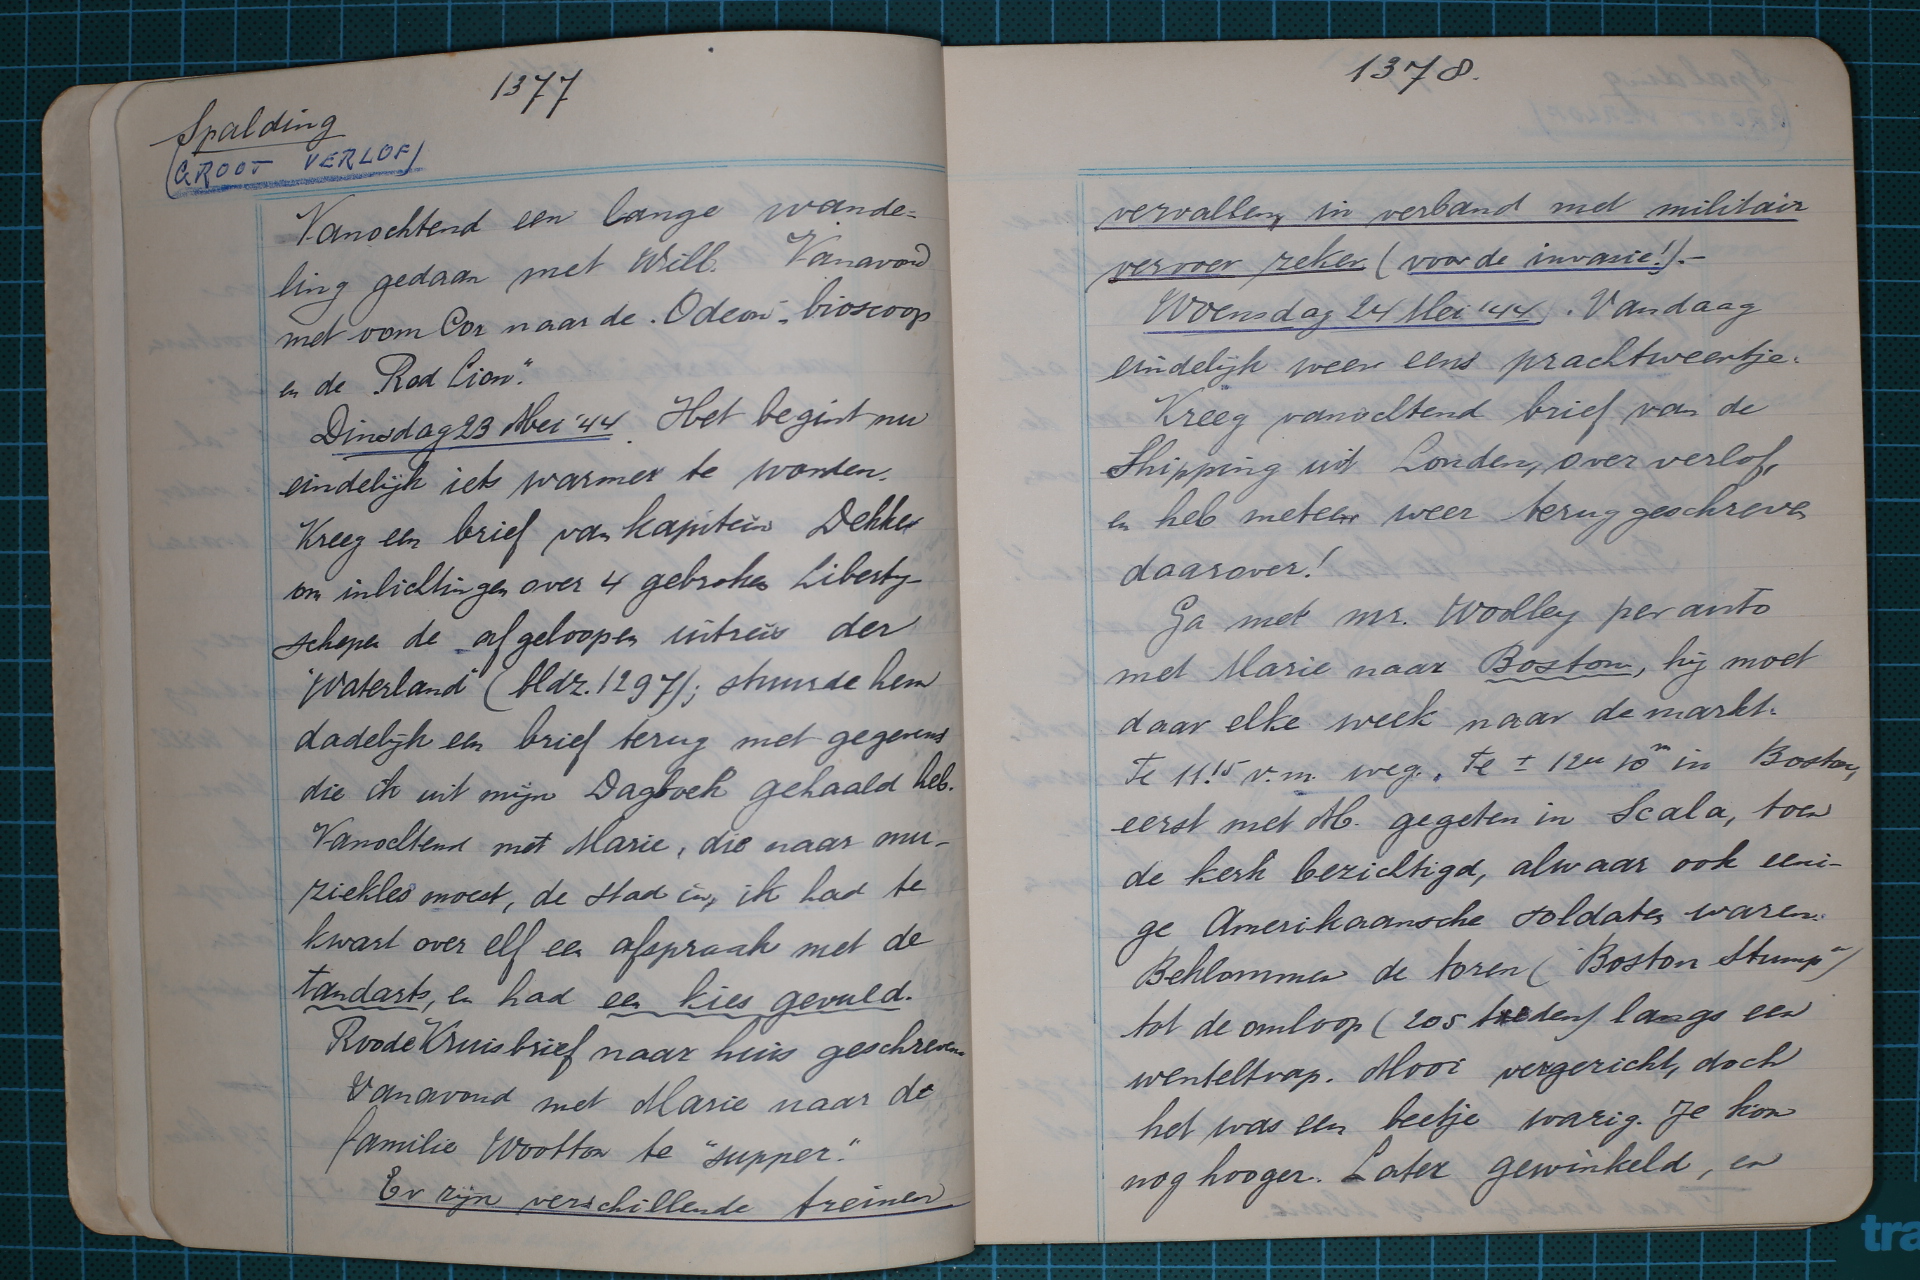 1377
Spalding
(GROOT VERLOF)
Vanochtend een lange wande=
ling gedaan met Will. Vanavond
met oom Cor naar de Odeon-bioscoop
en de "Red Lion".
Dinsdag 23 Mei '44. Het begint nu
eindelijk iets warmer te worden.
Kreeg een brief van kapitein Dekker
om inlichtingen over 4 gebroken Liberty-
schepen de afgeloopen uitreis der
"Waterland" (bldz. 1297); stuurde hem
dadelijk een brief terug met gegevens
die ik uit mijn Dagboek gehaald heb.
Vanochtend met Marie, die naar mu-
ziekles moest, de stad in, ik had te
kwart over elf een afspraak met de
tandarts, en had een kies gevuld.
Roode Kruisbrief naar huis geschreven.
Vanavond met Marie naar de
familie Wootton te "supper".
Er zijn verschillende treinen
1378.
vervallen, in verband met militair
vervoer zeker (voor de invasie!).-
Woensdag 24 Mei '44. Vandaag
eindelijk weer eens prachtweertje.
Kreeg vanochtend brief van de
Shipping uit Londen, over verlof,
en heb meteen weer teruggeschreven
daarover!
Ga met mr. Woolley per auto
met Marie naar Boston, hij moet
daar elke week naar de markt.
Te 11.15 v.m. weg. Te ± 12u 10m in Boston,
eerst met M. gegeten in Scala, toen
de kerk bezichtigd, alwaar ook eeni-
ge Amerikaansche soldaten waren.
Beklommen de toren ("Boston Stump")
tot de omloop (205 treden) langs een
wenteltrap. Mooi vergezicht, doch
het was een beetje wazig. Je kon
nog hooger. Later gewinkeld, en
tra